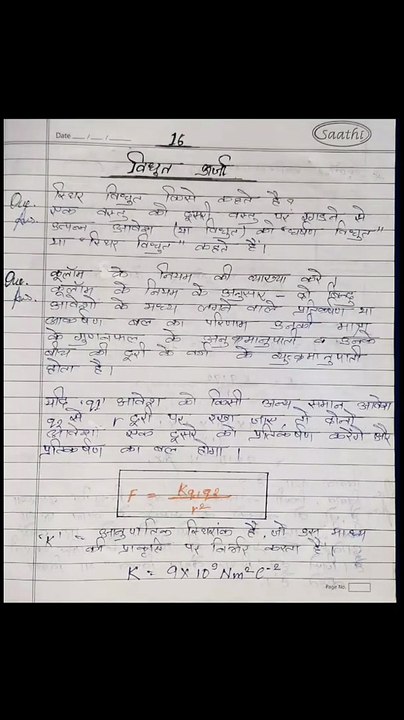 Date __/__/__
16
Saathi
विधुत ऊर्जा
Que. स्थिर विधुत किसे कहते है?
Ans. एक वस्तु को दूसरी वस्तु पर रगडने से
उत्पन्न आवेश (या विधुत) को "घर्षण विधुत"
या "स्थिर विधुत" कहते हैं।
Que. कूलॉम के नियम की व्याख्या करे।
Ans. कूलॉम के नियम के अनुसार - दो बिन्दु
आवेशो के मध्य लगने वाले प्रतिकर्षण या
आकर्षण बल का परिणाम उनकी मात्रा
के गुणनफल के अनुक्रमानुपाती व उनके
बीच की दूरी के वर्ग के व्युत्क्रमानुपाती
होता है।
यदि 'q1' आवेश को किसी अन्य समान आवेश
q2 से r दूरी पर रखा जाए तो दोनो
आवेश एक दूसरे को प्रतिकर्षण करेगे और
प्रतिकर्षण का बल होगा।
F = Kq1q2 / r²
'K' = आनुपातिक स्थिरांक है, जो उस माध्य
की प्रकृति पर निर्भर करता है।
K = 9 X 10⁹ Nm² C⁻²
Page No.